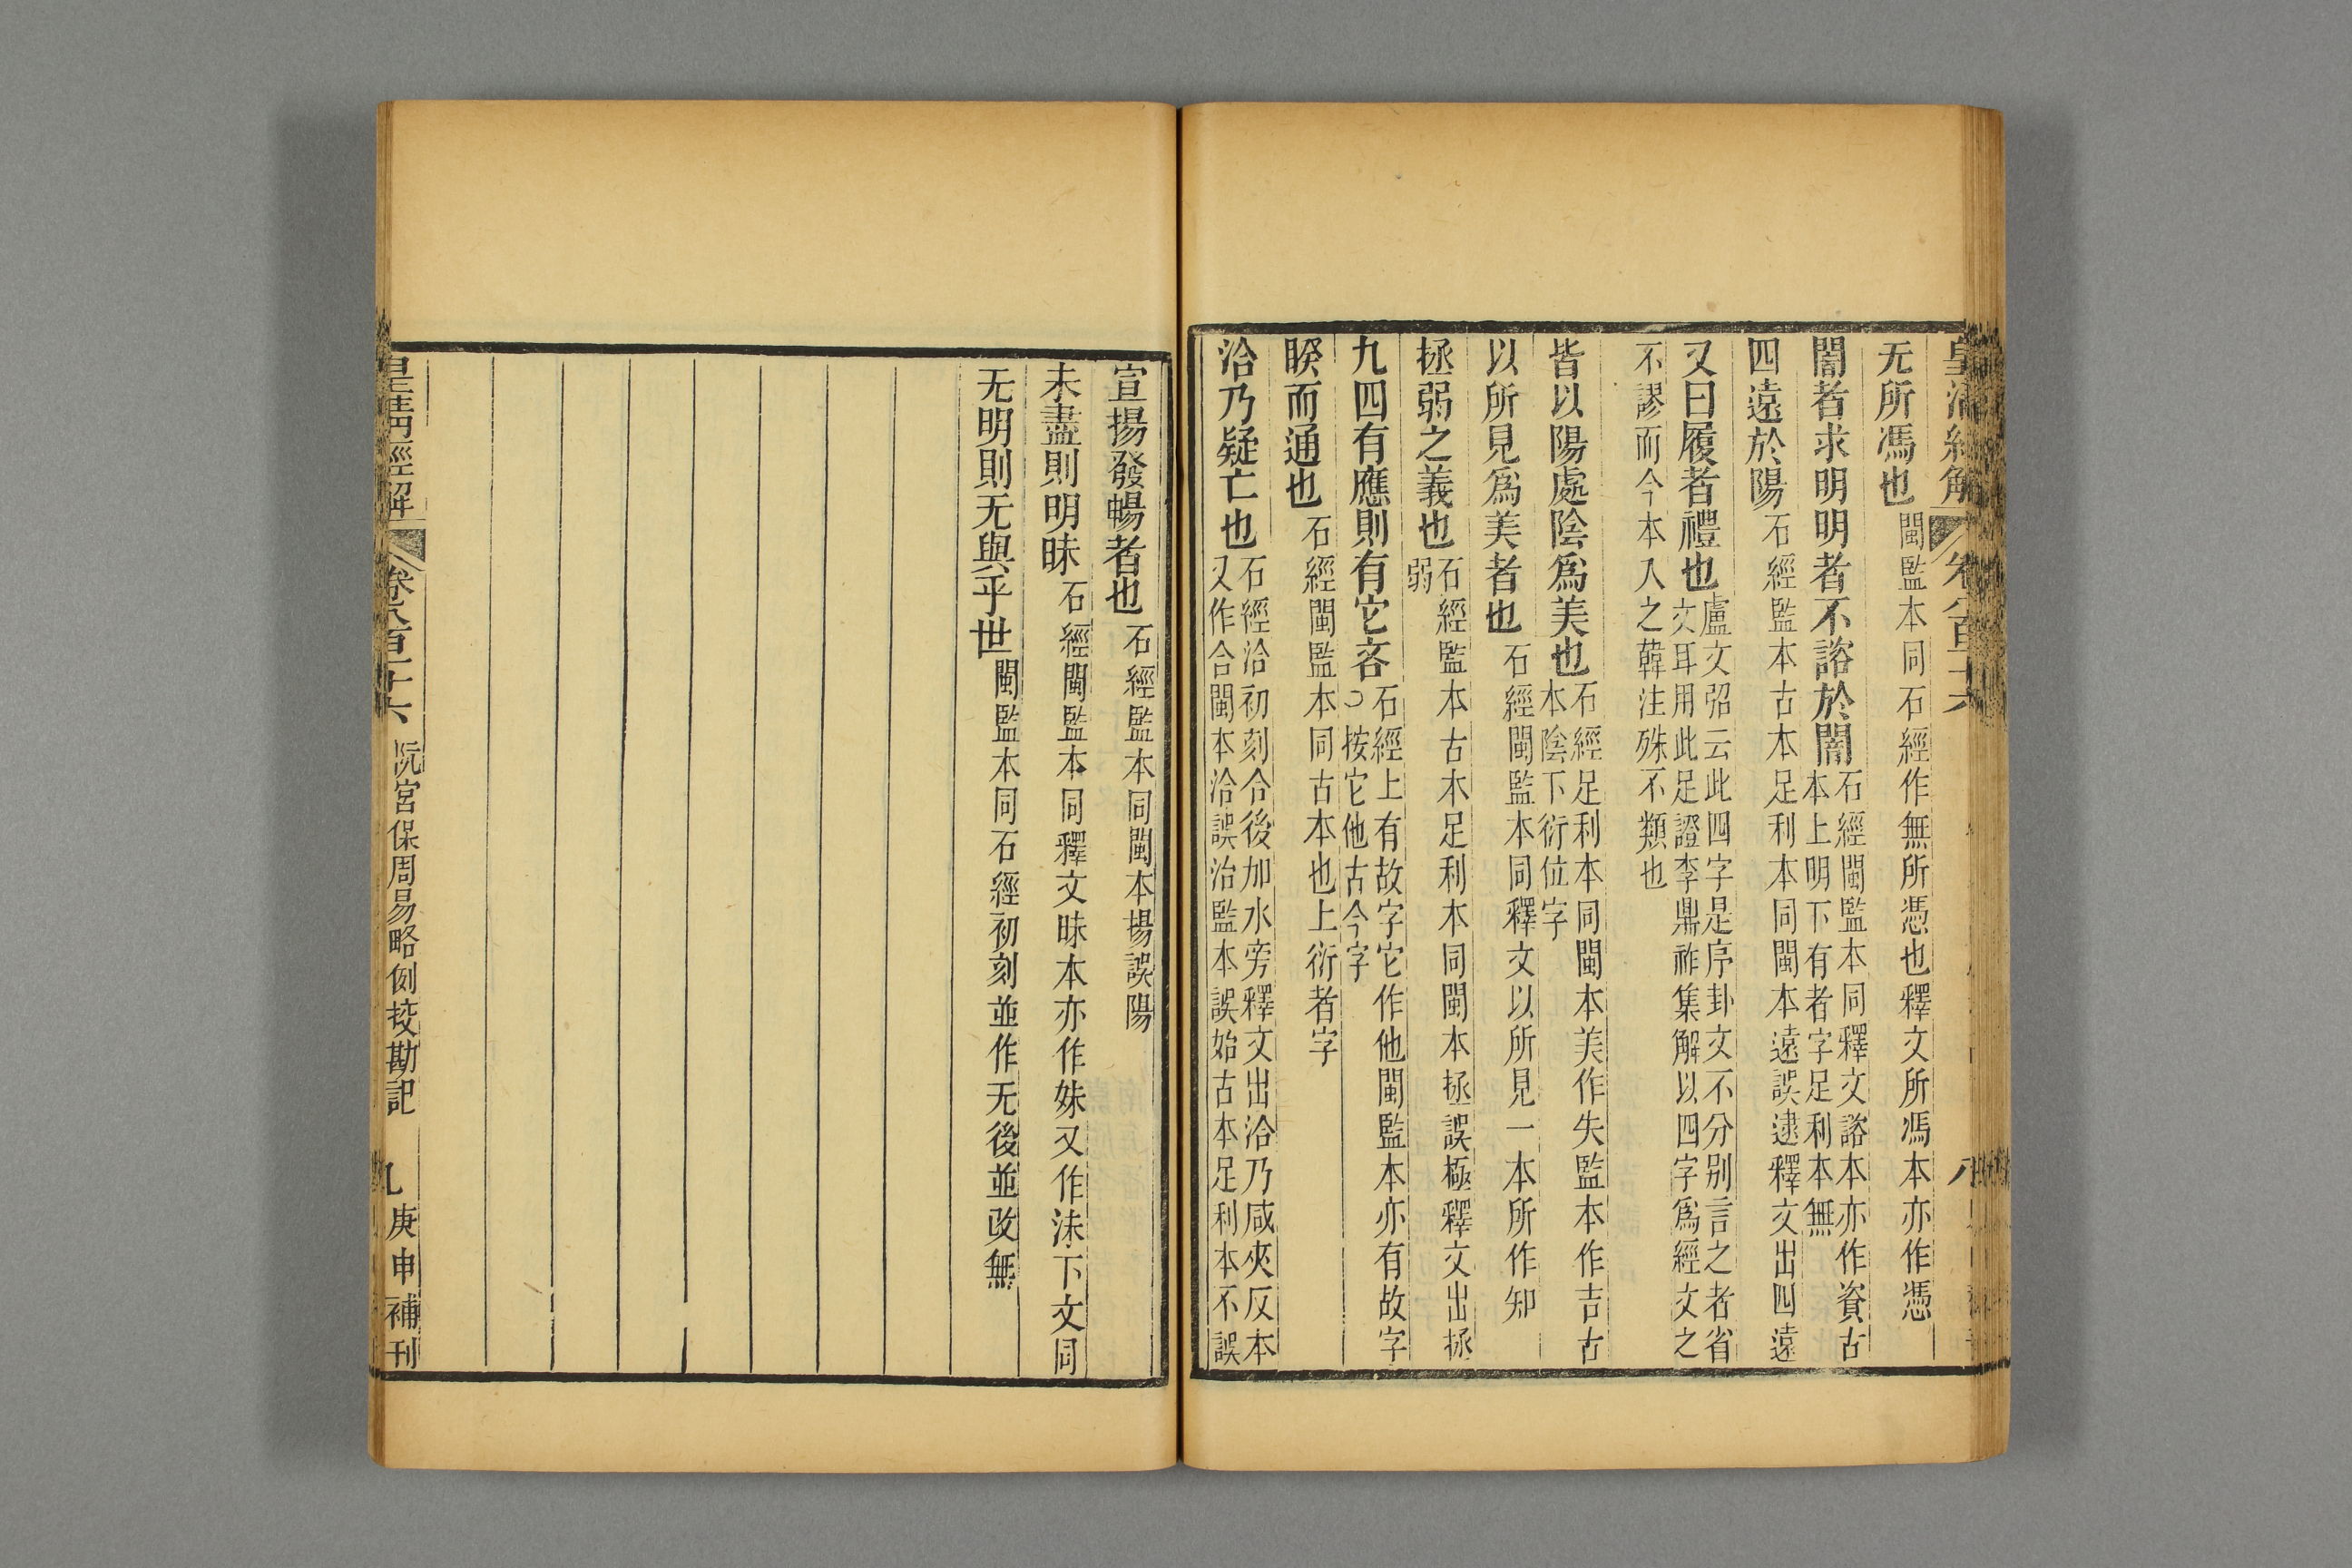 皇清經解 卷八百十六 八
无所馮也閩監本同石經作無所憑也釋文所馮本亦作憑
闇者求明明者不諮於闇石經閩監本同釋文諮本亦作資古本上明下有者字足利本無
四遠於陽石經監本古本足利本同閩本遠誤逮釋文出四遠
又曰履者禮也盧文弨云此四字是序卦文不分別言之者省文耳用此足證李鼎祚集解以四字爲經文之
不謬而今本入之韓注殊不類也
皆以陽處陰爲美也石經足利本同閩本美作失監本作吉古本陰下衍位字
以所見爲美者也石經閩監本同釋文以所見一本所作知
拯弱之義也石經監本古木足利本同閩本拯誤極釋文出拯弱
九四有應則有它吝石經上有故字它作他閩監本亦有故字○按它他古今字
睽而通也石經閩監本同古本也上衍者字
洽乃疑亡也石經洽初刻合後加水旁釋文出洽乃咸夾反本又作合閩本洽誤治監本誤始古本足利本不誤
宣揚發暢者也石經監本同閩本揚誤陽
未盡則明昧石經閩監本同釋文昧本亦作妹又作沬下文同
无明則无與乎世閩監本同石經初刻並作无後並改無
皇清經解 卷八百十六 阮宮保周易略例挍勘記 九 庚申補刊